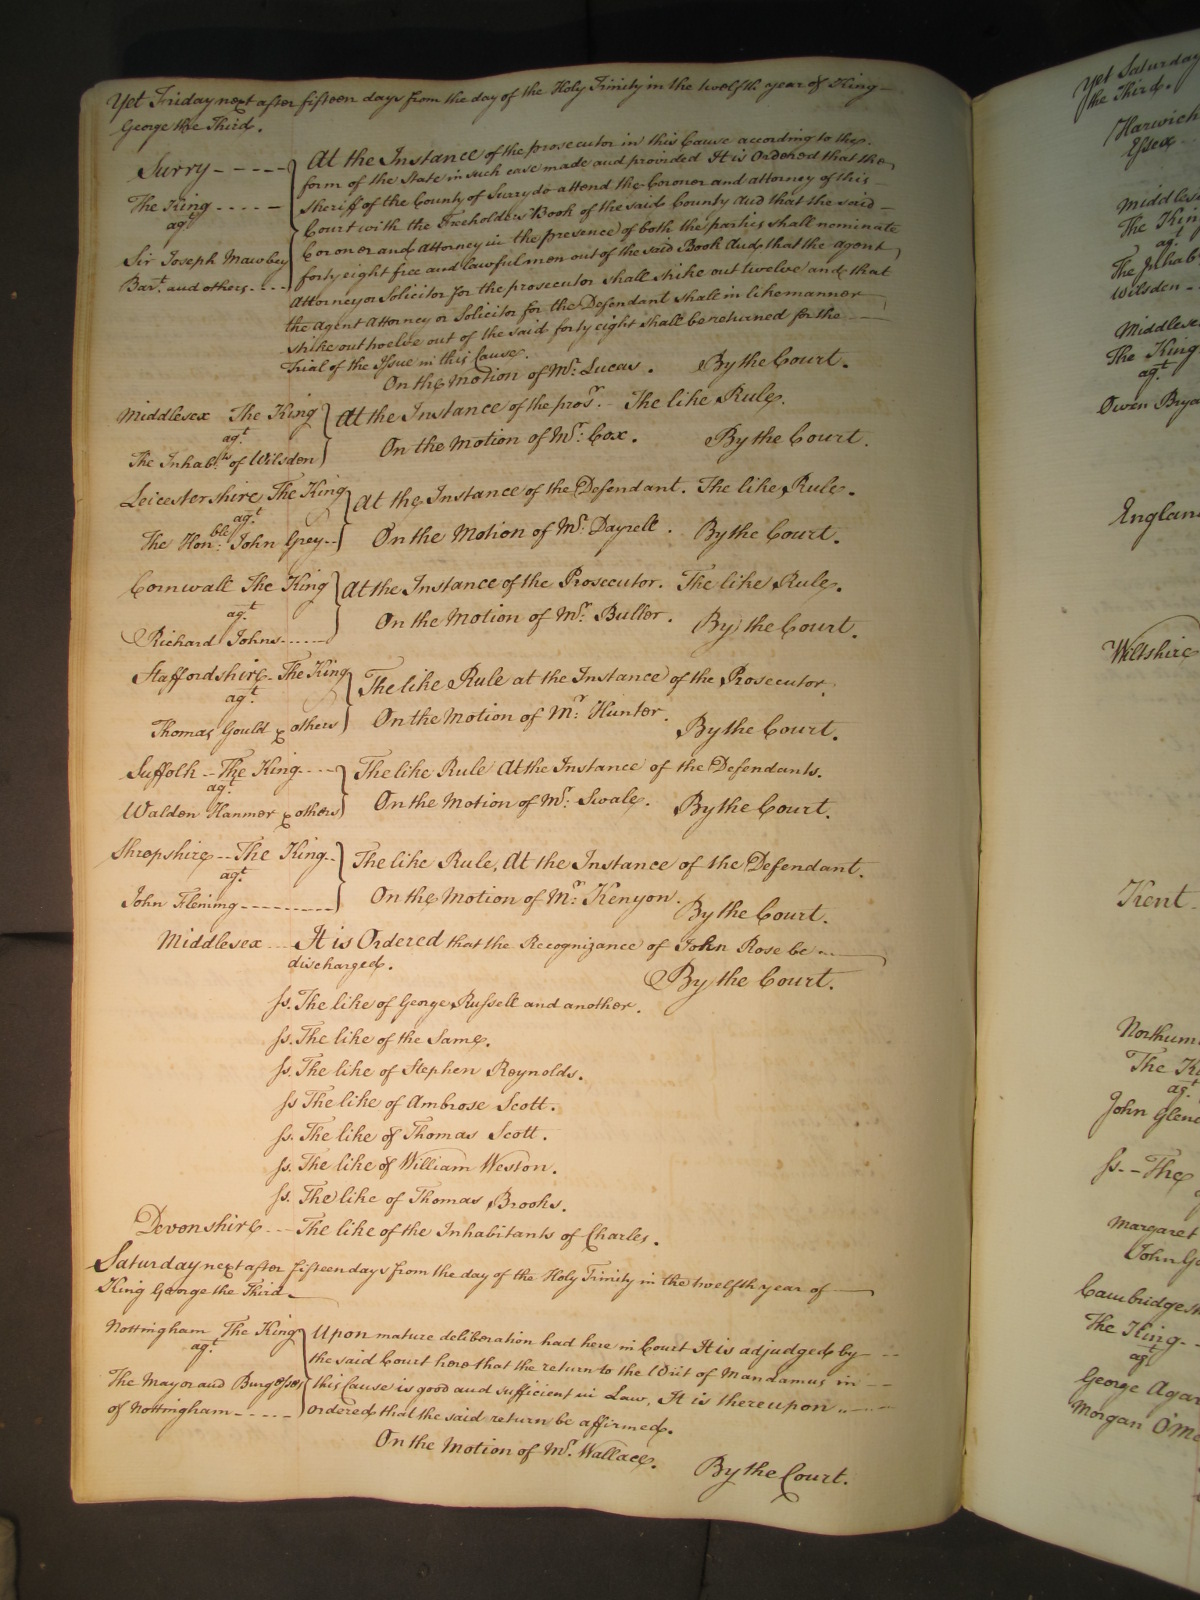 Yet Friday next after fifteen days from the day of the Holy Trinity in the twelfth year of King
George the Third.
Surry - - - - - At the Instance of the prosecutor in this Cause according to the
form of the State in such case made and provided It is Ordered that the
The King - - - - - Sheriff of the County of Surry do attend the Coroner and attorney of this
agt Court with the Freeholders Book of the said County And that the said
Coroner and Attorney in the presence of both the parties shall nominate
Sir Joseph Mawbey forty eight free and lawful men out of the said Book And that the agent
Bart. and others - - - Attorney or Solicitor for the prosecutor shall strike out twelve and that
the agent Attorney or Solicitor for the Defendant shall in like manner
strike out twelve out of the said forty eight shall be returned for the
Trial of the Issue in this Cause.
On the Motion of Mr: Lucas. By the Court.
Middlesex The King At the Instance of the prosr. - The like Rule.
agt
The Inhabts of Wilsden On the Motion of Mr: Cox. By the Court.
Leicestershire The King At the Instance of the Defendant. The like Rule.
agt
The Honble: John Grey - - On the Motion of Mr: Dayrell. By the Court.
Cornwall The King At the Instance of the Prosecutor. The like Rule.
agt
Richard Johns - - - - On the Motion of Mr: Buller. By the Court.
Staffordshire - The King The like Rule at the Instance of the Prosecutor.
agt
Thomas Gould & others On the Motion of Mr: Hunter. By the Court.
Suffolk - - The King - - - - The like Rule At the Instance of the Defendants.
agt
Walden Hanmer & others On the Motion of Mr: Swale. By the Court.
Shropshire - - The King - - The like Rule, At the Instance of the Defendant.
agt
John Fleming - - - - - - - - On the Motion of Mr: Kenyon. By the Court.
Middlesex - - - It is Ordered that the Recognizance of John Rose be
discharged. By the Court.
ss. The like of George Russell and another.
ss. The like of the Same.
ss. The like of Stephen Reynolds.
ss The like of Ambrose Scott.
ss. The like of Thomas Scott.
ss. The like of William Weston.
ss. The like of Thomas Brooks.
Devonshire - - - The like of the Inhabitants of Charles.
Saturday next after fifteen days from the day of the Holy Trinity in the twelfth year of
King George the Third
Nottingham The King Upon mature deliberation had here in Court It is adjudged by
agt the said Court here that the return to the Writ of Mandamus in
The Mayor and Burgesses this Cause is good and sufficient in Law, It is thereupon
of Nottingham - - - - - ordered that the said return be affirmed.
On the Motion of Mr. Wallace. By the Court.
Yet Saturday
the Third.
Harwich
Essex
The Kin
agt
The Inhab
Wilsden -
The King
agt
Owen Brya
England
Wiltshire
Kent
Northum
The Ki
agt
John Glen
ss. - The
Margaret
John Go
Cambridgesh
The King -
agt
George Agar
Morgan O'Mo